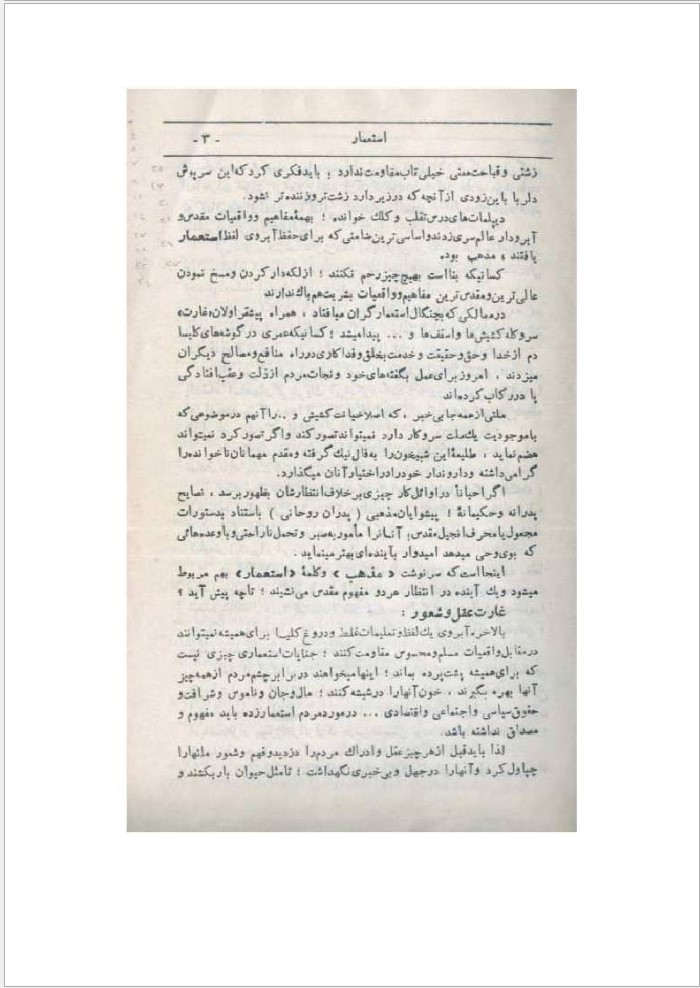 استعمار
- ۳ -
زشتی و قباحت معنی خیلی تاب مقاومت ندارد ؛ باید فکری کرد که این سرپوش
دلربا باین زودی از آنچه که در زیر دارد زشت تر و زننده تر نشود.
دیپلمات‌های درس تقلب و کلك خوانده ؛ بهمهٔ مفاهیم و واقعیات مقدس و
آبرودار عالم سری زدند و اساسی ترین ضامنی که برای حفظ آبروی لفظ استعمار
یافتند « مذهب بود.
کسانیکه بنا است بهیچ چیز رحم نکنند ؛ از لکه‌دار کردن و مسخ نمودن
عالی ترین و مقدس ترین مفاهیم و واقعیات بشریت هم باك ندارند
در ممالکی که بچنگال استعمار گران میافتاد ، همراه پیشقراولان «غارت»
سر و کله کشیش‌ها و اسقف‌ها و ... پیدا میشد ؛ کسانیکه عمری در گوشه‌های کلیسا
دم از خدا و حق و حقیقت و خدمت بخلق و فداکاری در راه منافع و مصالح دیگران
میزدند ، امروز برای عمل بگفته‌های خود و نجات مردم از ذلت و عقب افتادگی
پا در رکاب کرده‌اند
ملتی از همه جا بی خبر ، که اصلا خیانت کشیش و ... را آنهم در موضوعی که
با موجودیت یك ملت سر و کار دارد نمیتواند تصور کند و اگر تصور کرد نمیتواند
هضم نماید ، طلیعهٔ این شبیخون را به فال نیك گرفته و مقدم مهمانان ناخوانده را
گرامی داشته و دار و ندار خود را در اختیار آنان میگذارد.
اگر احیاناً در اوائل کار چیزی بر خلاف انتظارشان بظهور برسد ، نصایح
پدرانه و حکیمانهٔ ؛ پیشوایان مذهبی ( پدران روحانی ) باستناد بدستورات
مجعول یا محرف انجیل مقدس؛ آنانرا مأمور به صبر و تحمل ناراحتی و با وعده‌هائی
که بوی وحی میدهد امیدوار بآینده‌ای بهتر مینماید .
اینجا است که سرنوشت « مذهب » و کلمهٔ « استعمار » بهم مربوط
میشود و یك آینده در انتظار هر دو مفهوم مقدس می‌نشیند ؛ تا چه پیش آید ؟
غارت عقل و شعور :
بالاخره آبروی یك لفظ و تعلیمات غلط و دروغ کلیسا برای همیشه نمیتوانند
در مقابل واقعیات مسلم و محسوس مقاومت کنند ؛ جنایات استعماری چیزی نیست
که برای همیشه پشت پرده بماند ؛ اینها میخواهند در برابر چشم مردم از همه چیز
آنها بهره بگیرند ، خون آنها را در شیشه کنند ؛ مال و جان و ناموس و شرافت و
حقوق سیاسی و اجتماعی و اقتصادی ... در مورد مردم استعمار زده باید مفهوم و
مصداق نداشته باشد.
لذا باید قبل از هر چیز عقل و ادراك مردم را دزدید و فهم و شعور ملتها را
چپاول کرد و آنها را در جهل و بی خبری نگهداشت ؛ تا مثل حیوان بار بکشند و